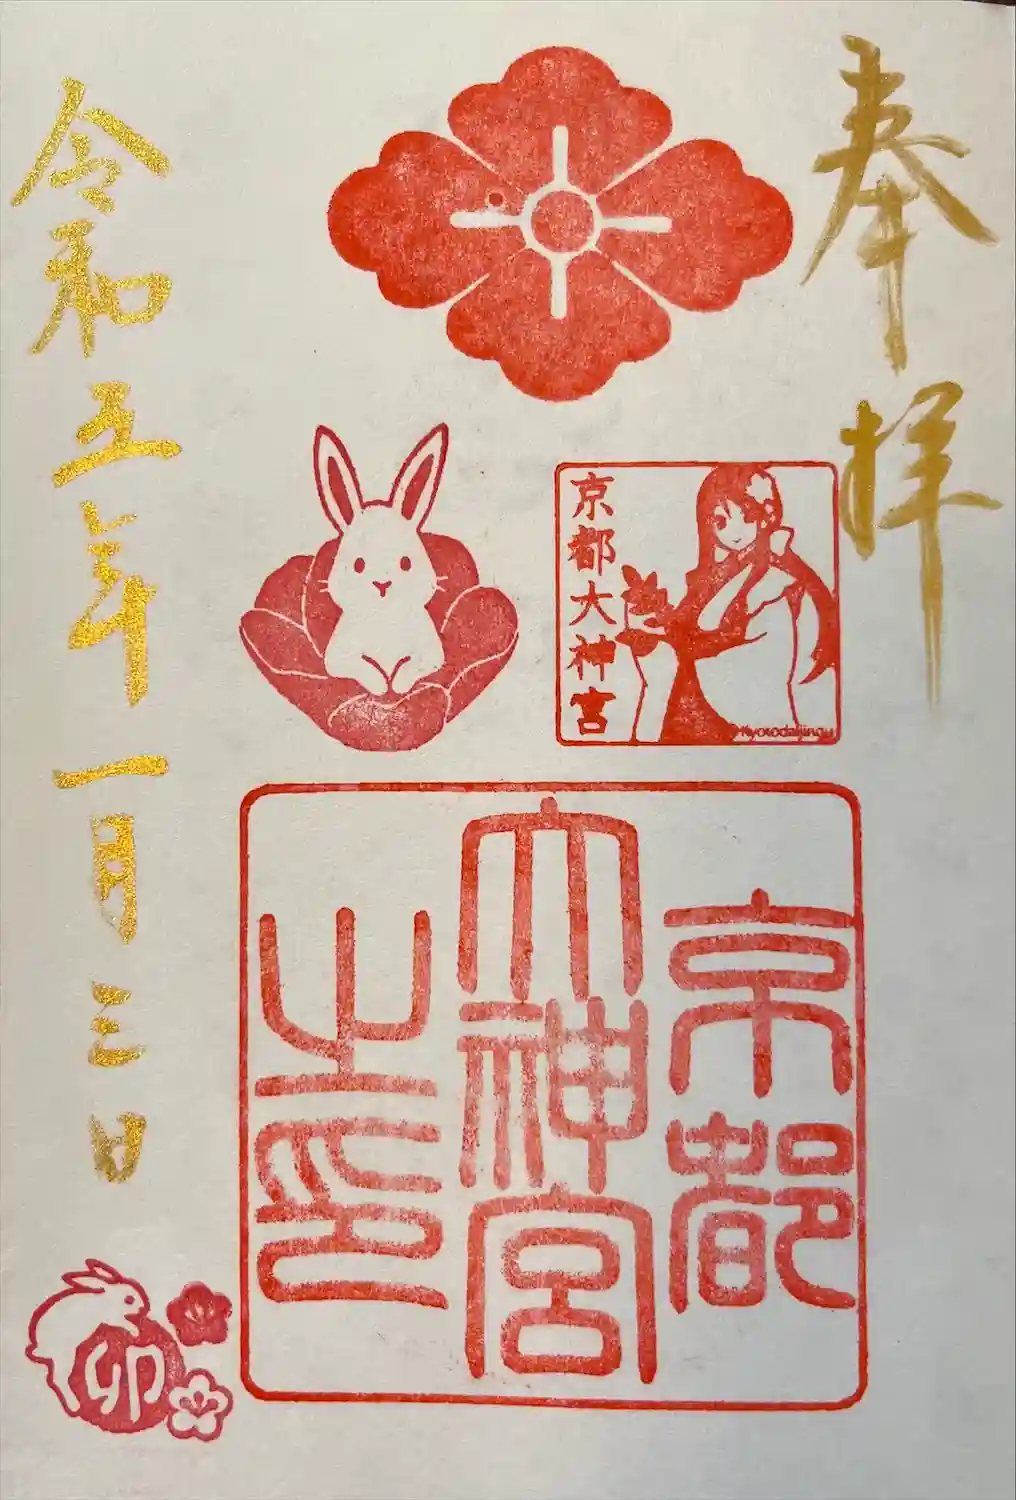 奉拝
京都大神宮
Kyotodaijingu
京都
大神宮
之印
令和五年一月三日
卯